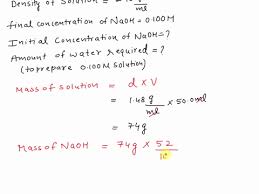 Density of Solution = g/ml
final concentration of NaOH = 0.100M
Initial Concentration of NaOH = ?
Amount of water required = ?
(to prepare 0.100M solution)
Mass of solution = d × V
= 1.48 g/ml × 50.0ml
= 74g
Mass of NaOH = 74g × 52/10